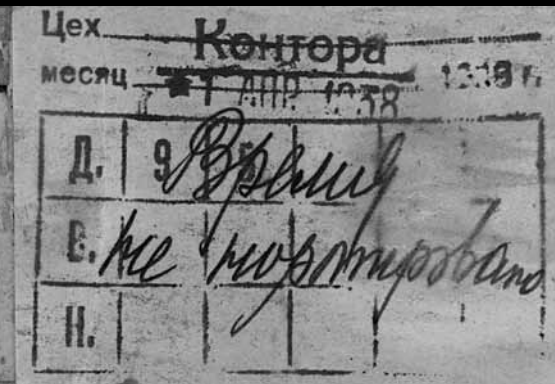 Цех Контора
месяц 1 АПР 1938 193 г.
Д. 9
Время
В. не нормировано
Н.